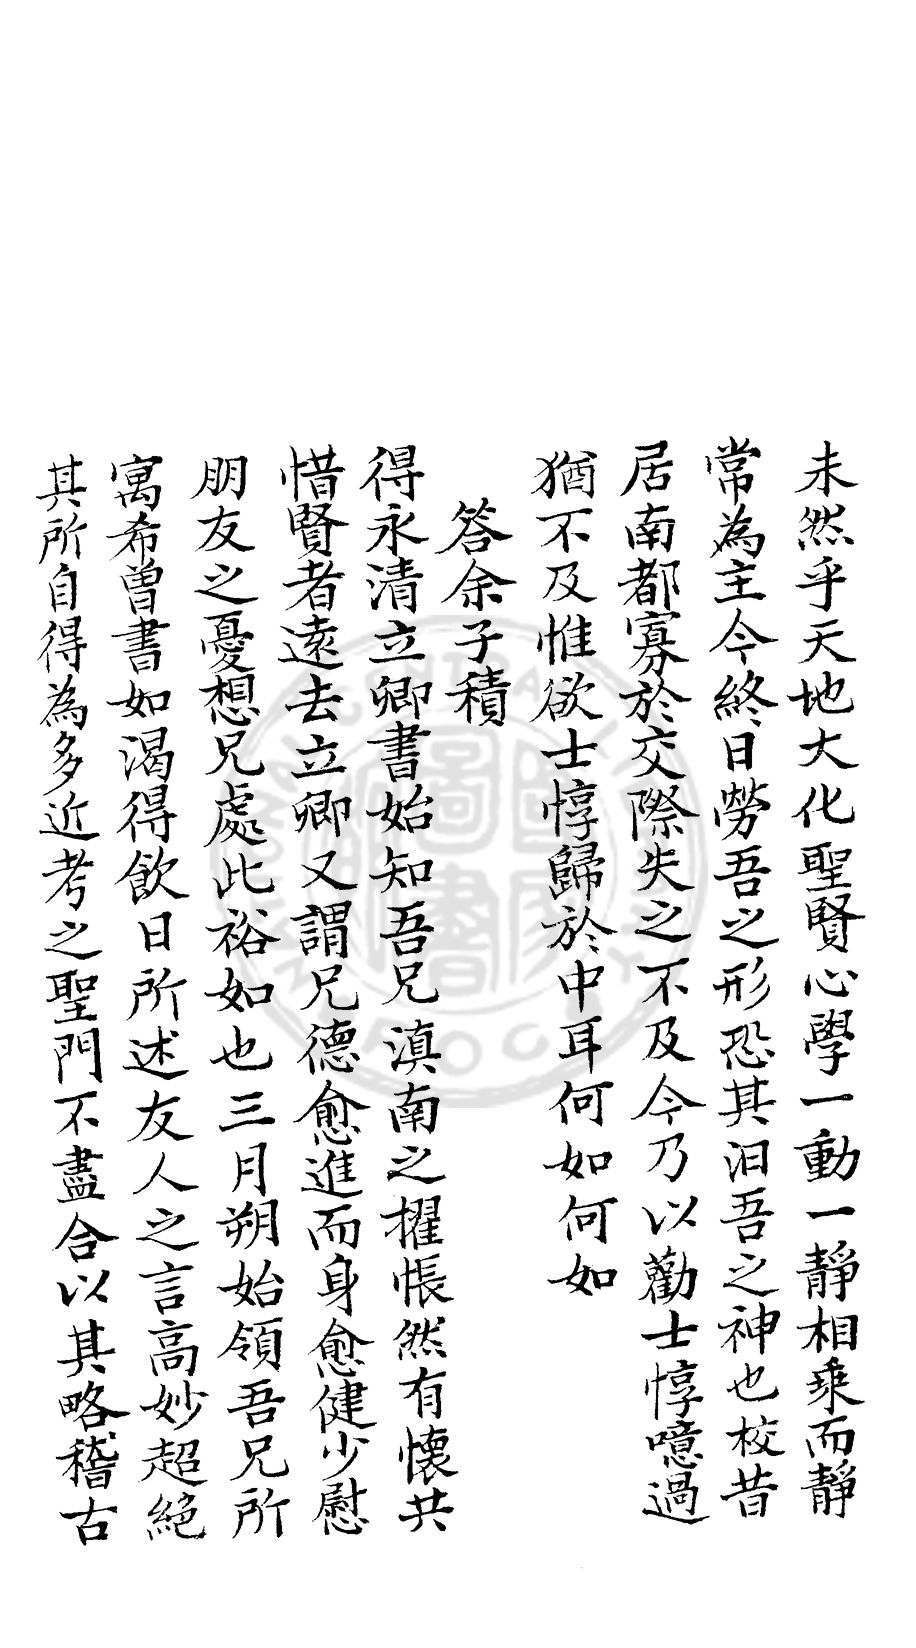 未然乎天地大化聖賢心學一動一靜相乘而靜
常為主今終日勞吾之形恐其汨吾之神也校昔
居南都寡於交際失之不及今乃以勸士惇噫過
猶不及惟欲士惇歸於中耳何如何如
答余子積
得永清立卿書始知吾兄滇南之擢悵然有懷共
惜賢者遠去立卿又謂兄德愈進而身愈健少慰
朋友之憂想兄處此裕如也三月朔始領吾兄所
寓希曾書如渴得飲日所述友人之言高妙超絕
其所自得為多近考之聖門不盡合以其略稽古